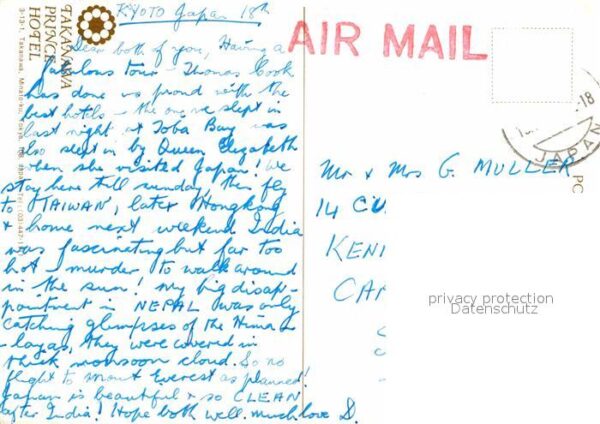 KYOTO Japan 18th
Dear both of you, Having a
fabulous tour - Thomas Cook
has done us proud with the
best hotels - the one we slept in
last night at Toba Bay was
also slept in by Queen Elizabeth
when she visited Japan! We
stay here till Sunday, then fly
to TAIWAN, later Hongkong
& home next weekend. India
was fascinating but far too
hot - murder to walk around
in the sun! My big disap-
pointment in NEPAL was only
catching glimpses of the Hima
-layas, they were covered in
thick monsoon cloud. So no
flight to Mount Everest as planned!
Japan is beautiful & so CLEAN
after India! Hope both well. much love D.
TAKANAWA
PRINCE
HOTEL
3-13-1, Takanawa, Minato-ku, Tokyo
AIR MAIL
18
JAPAN
PC
Mr & Mrs G. MULLER
14
KENI
CAR
privacy protection
Datenschutz